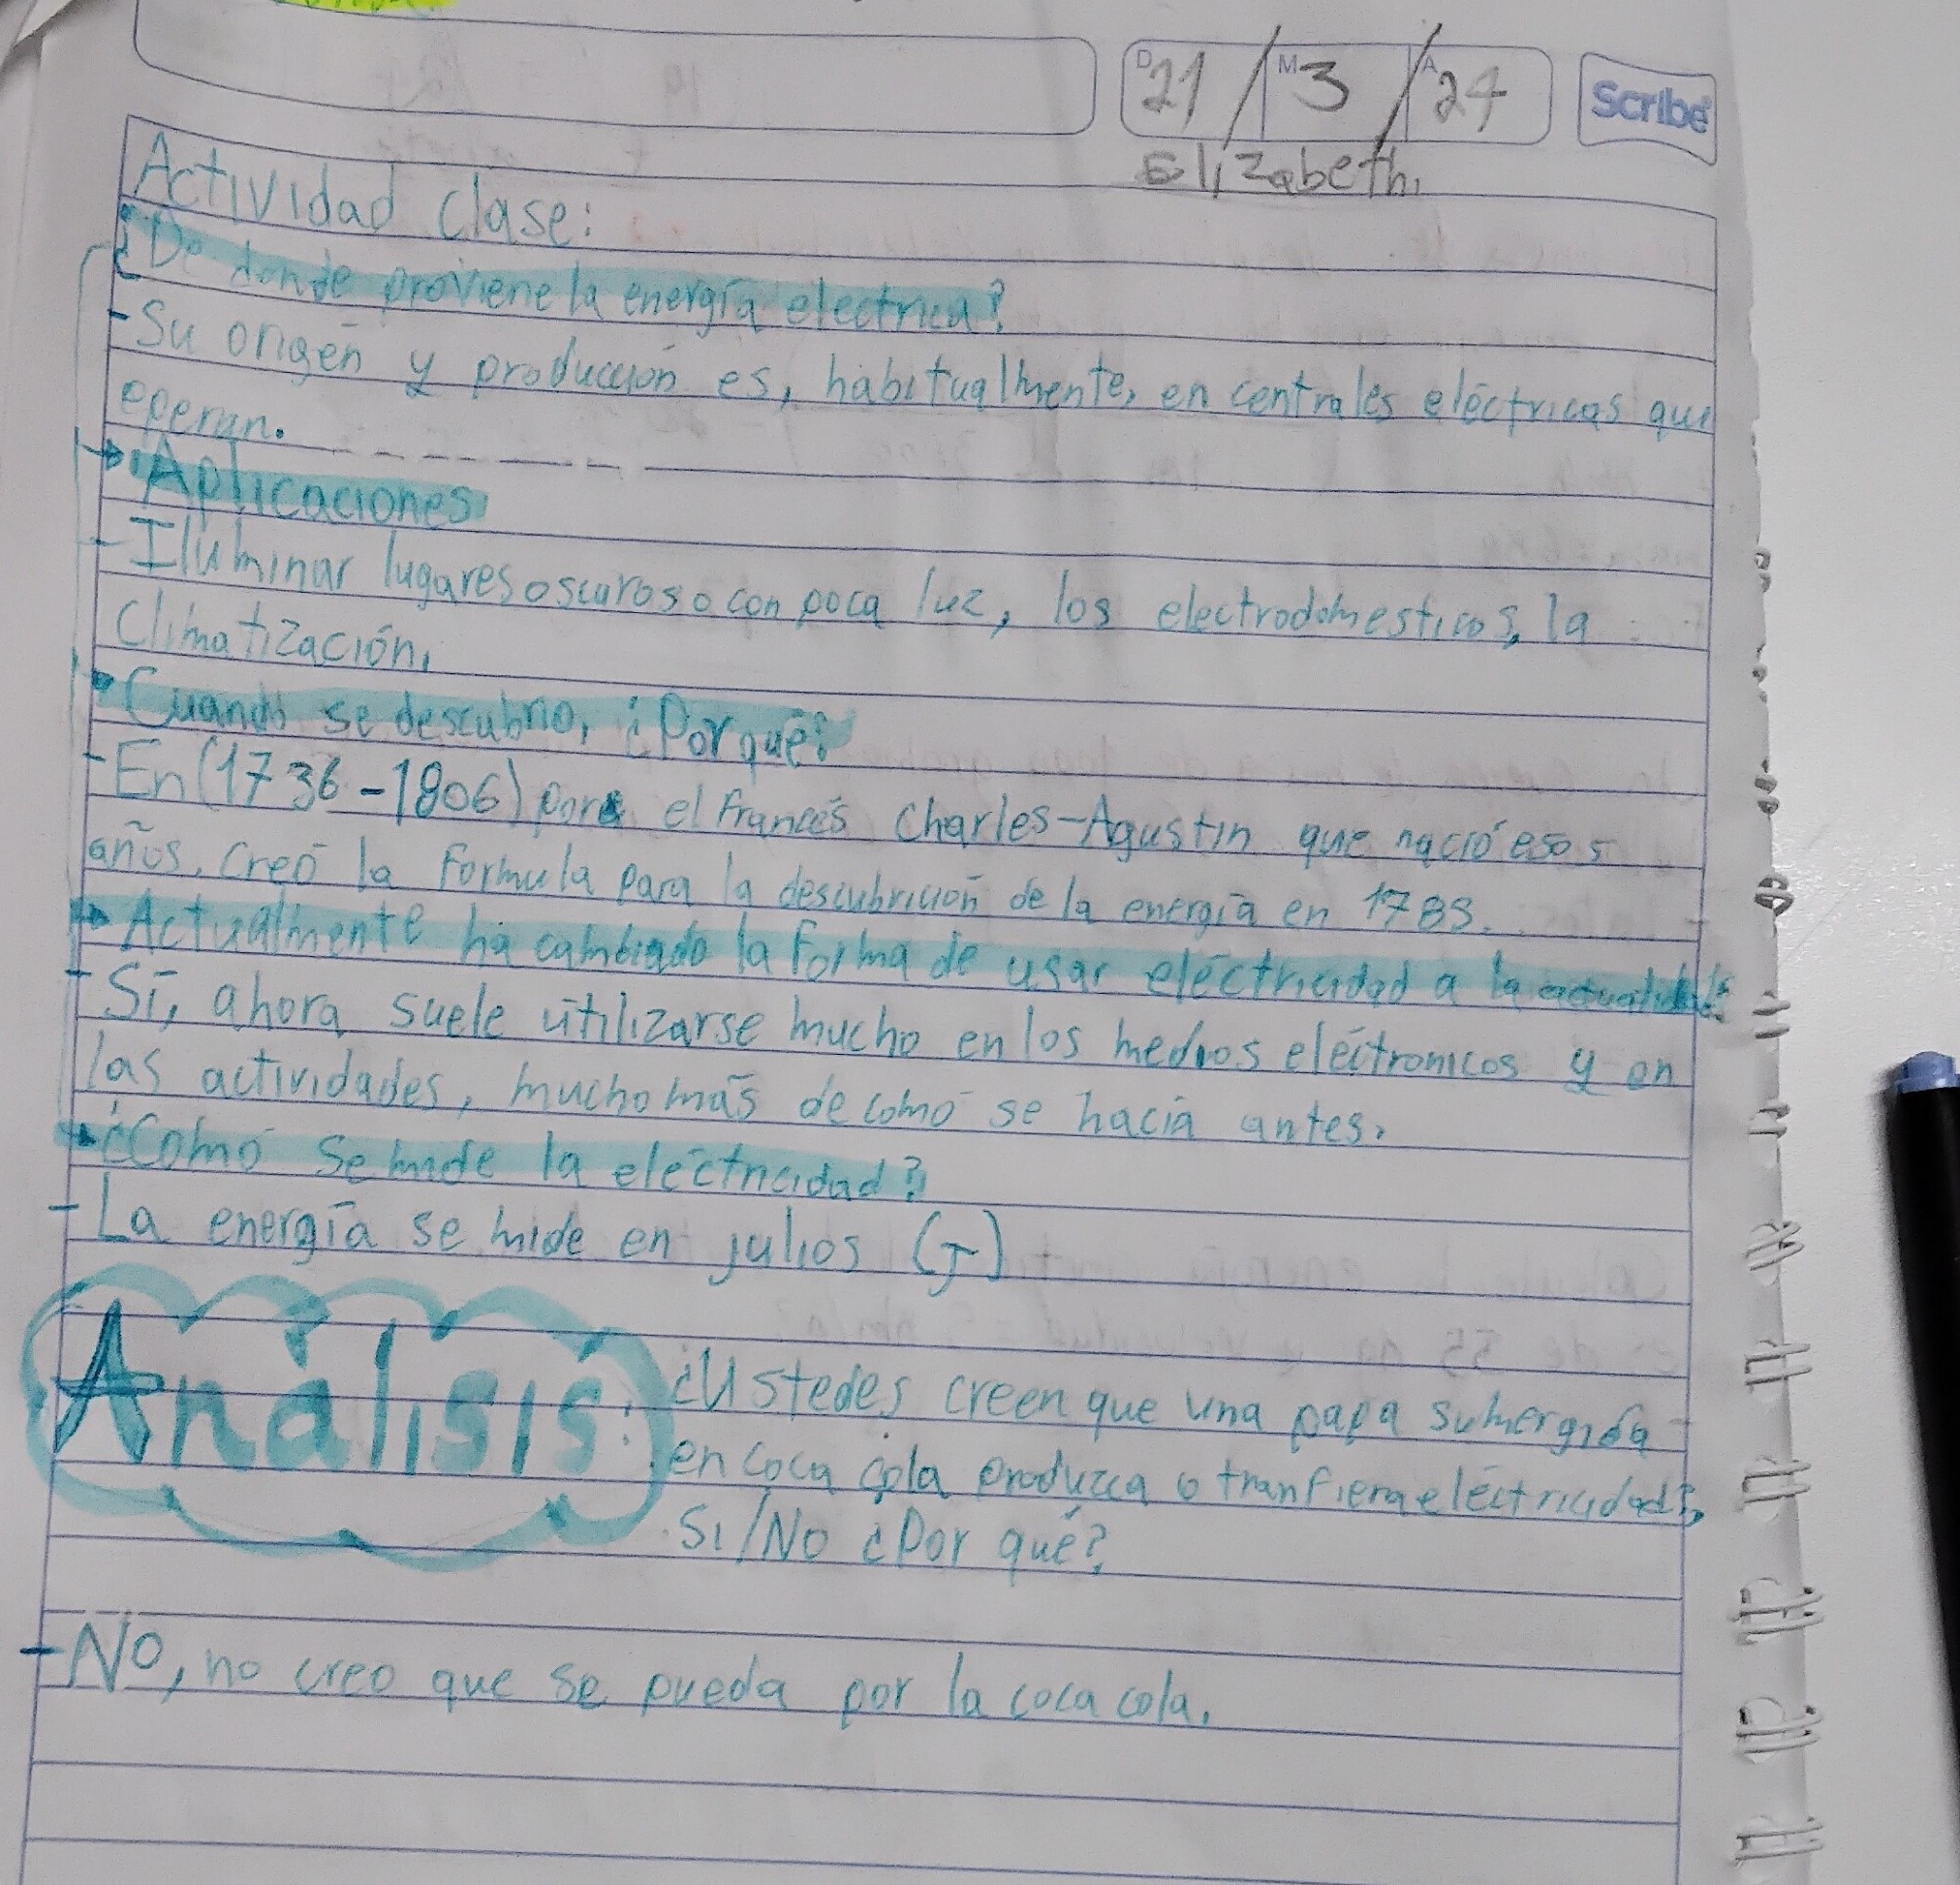 D 21 / M 3 / A 24
Scribe
Elizabeth.
Actividad clase:
¿De donde proviene la energía electrica?
- Su origén y producción es, habitualmente, en centrales eléctricas que
operan.
Aplicaciones
- Iluminar lugares oscuros o con poca luz, los electrodomesticos, la
Climatización.
Cuando se descubrio, ¿Por qué?
- En (1736-1806) por el francés Charles-Agustin que nació esos
años, creó la formula para la descubrición de la energía en 1785.
Actualmente ha cambiado la forma de usar eléctricidad a la
- Sí, ahora suele utilizarse mucho en los medios eléctronicos y en
las actividades, mucho más de como se hacía antes.
¿Como se mide la eléctricidad?
- La energía se mide en julios (J)
Análisis: ¿Ustedes creen que una papa sumergida
en coca cola produzca o tranfiera eléctricidad?,
Si/No ¿Por qué?
- No, no creo que se pueda por la coca cola.